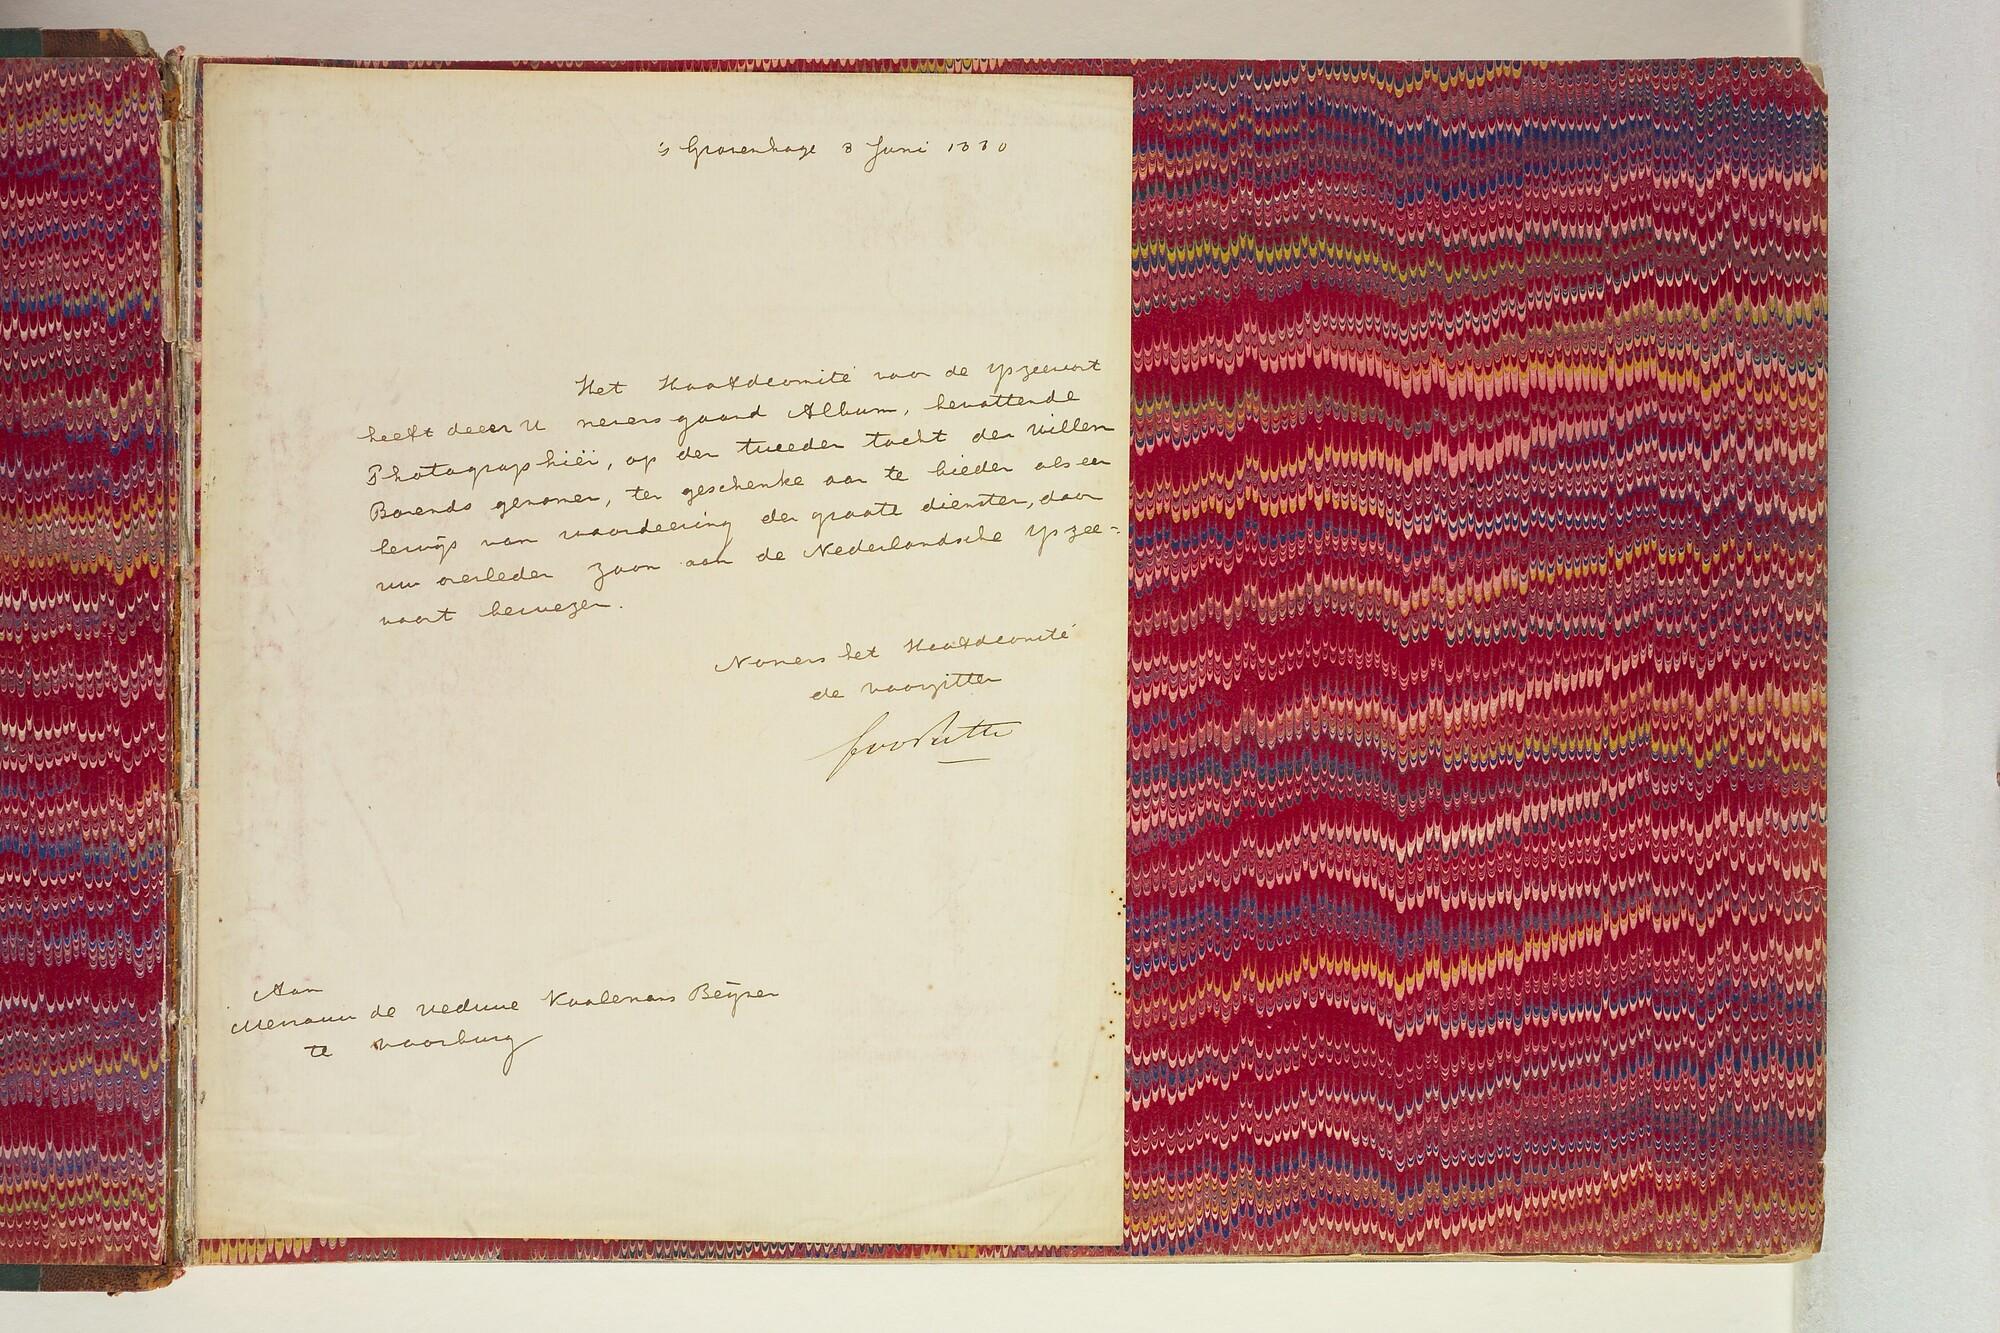 's Gravenhage 8 Juni 1880
Het Hoofdcomité voor de IJszeevaart
heeft de eer U nevensgaand Album, bevattende
Photographiën, op den tweeden tocht der Willem
Barends genomen, ten geschenke aan te bieden als een
bewijs van waardeering der groote diensten, door
uw overleden zoon aan de Nederlandsche IJszee=
vaart bewezen.
Namens het Hoofdcomité
de voorzitter
Aan
Mevrouw de Weduwe Koolemans Beijnen
te Voorburg